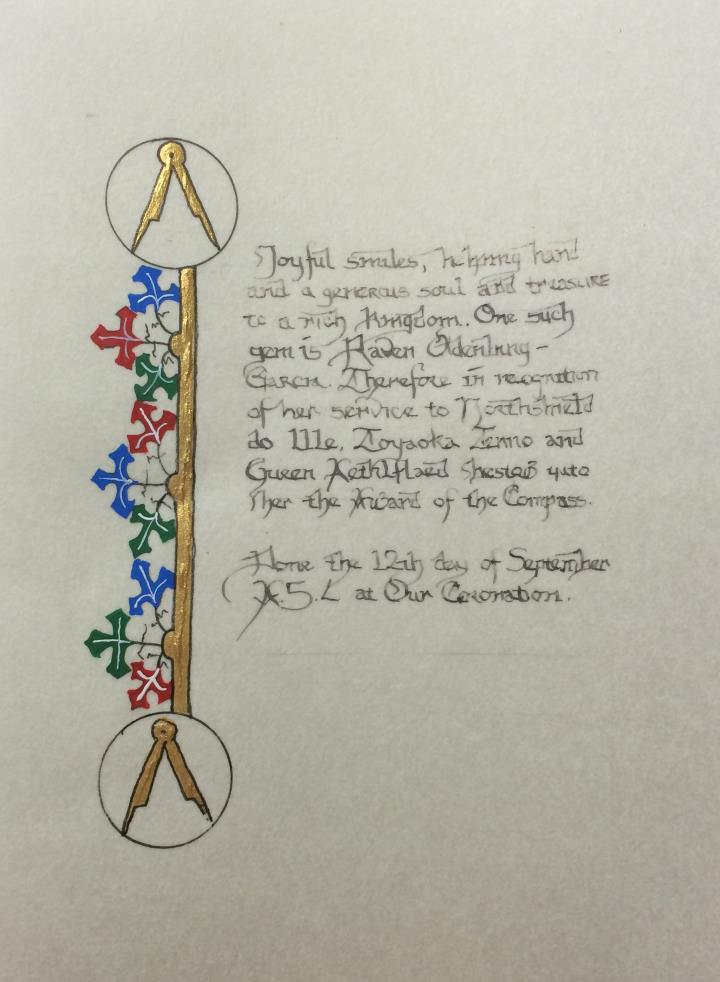 Joyful smiles, helping hand
and a generous soul and treasure
to a rich Kingdom. One such
gem is Raven
Garcia. Therefore in recognition
of her service to Northshield
do We, Toyaoka Tenno and
Queen Aethlflaed bestow unto
her the Award of the Compass.
Done the 12th day of September
A.S. L at Our Coronation.